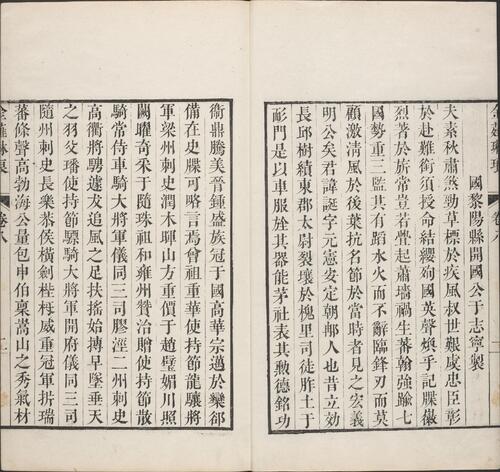 國黎陽縣開國公于志寧製
夫素秋肅煞勁草標於疾風叔世艱虞忠臣彰
於赴難銜須授命結纓殉國英聲煥乎記牒徽
烈著於旂常豈若舋起蕭墻禍生蕃翰強踰七
國勢重三監其有蹈水火而不辭臨鋒刃而莫
顧激清風於後葉抗名節於當時者見之宏義
明公矣君諱誕字元憲安定朝郍人也昔立効
長邱樹績東郡太尉裂壤於槐里司徒胙土于
耏門是以車服其器能茅社表其勲德銘功
衞鼎騰美晉鍾盛族冠于國高華宗邁於欒郤
備在史牒可略言焉曾祖重華使持節龍驤將
軍梁州刺史潤木暉山方重價于趙璧媚川照
闕曜奇采于隨珠祖和雍州贊治贈使持節散
騎常侍車騎大將軍儀同三司膠涇二州刺史
高衢將騁遽追風之足扶搖始摶早墜垂天
之羽父璠使持節驃騎大將軍開府儀同三司
隨州刺史長樂恭侯橫劍梐枑威重冠軍析瑞
蕃條聲高勃海公量包申伯稟嵩山之秀氣材
金薤琳琅
卷八